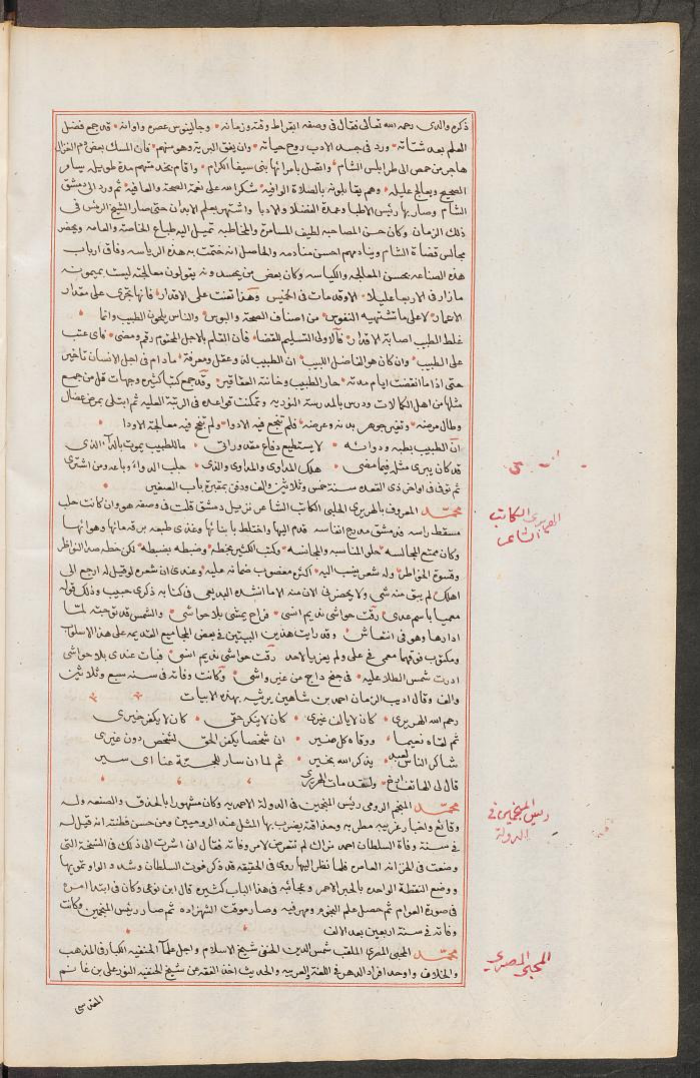 ذكره والدى رحمه الله تعالى فقال فى وصفه ابقراط وقته وزمانه وجالينوس عصره واوانه قد جمع فضل
العلم بعد شتاته ورد فى جسد الادب روح حياته وان يفق البرية وهو منهم فان المسك بعض دم الغزال
هاجر من حمص الى طرابلس الشام واتصل بامرائها بنى سيفا الكرام واقام بخدمتهم مدة طويله يسامر
الصحيح ويعالج عليله وهم يقابلونه بالصلاة الوافيه شكرا لله على نعمة الصحة والعافيه ثم ورد الى دمشق
الشام وصار بها رئيس الاطبا وعمدة الفضلا والادبا واشتهر بعلم الابدان حتى صار الشيخ الرئيس فى
ذلك الزمان وكان حسن المصاحبه لطيف المسامرة والمخاطبه تميل اليه طباع الخاصة والعامه ويحضر
مجالس قضاة الشام وينادمهم احسن منادمه والحاصل انه ختمت به هذه الرياسه وفاق ارباب
هذه الصناعه بحسن المعالجه والكياسه وكان بعض من يحسدونه يقولون معالجته ليست بميمونه
ما زار فى الاربعا عليلا الا وقد مات فى الخميس وهذا تعنت على الاقدار فانها تجرى على مقدار
الاعمار لا على ما تشتهيه النفوس من اصناف الصحة والبوس والناس يلحون الطبيب وانما
غلط الطبيب اصابة الاقدار فالاولى التسليم للقضا فان القلم بالاجل المحتوم رقم ومضى فماى عتب
على الطبيب وان كان هو الفاضل اللبيب ان الطبيب له عقل ومعرفة ما دام فى اجل الانسان تاخير
حتى اذا ما انقضت ايام مدته حار الطبيب وخانته العقاقير وقد جمع كتبا كثيره وجهات قل من جمع
مثلها من اهل الكمالات ودرس بالمدرسة النوريه وتمكنت قواعده فى الرتبة العليه ثم ابتلى بمرض عضال
وطال مرضه وتغير جوهر بدنه وعرضه فلم تنجع فيه الادوا ولم تنجح فيه معالجة الاودا
ان الطبيب بطبه ودوائه لا يستطيع دفاع مقدور اتى ما للطبيب يموت بالداء الذى
قد كان يبرى مثله فيما مضى هلك المداوى والمداوى والذى جلب الدواء وباعه ومن اشترى
ثم توفى فى اواخر ذى القعده سنة خمس وثلاثين والف ودفن بمقبرة باب الصغير
محمد المعروف بالحريرى الحلبى الكاتب الشاعر نزيل دمشق قلت فى وصفه هو وان كانت حلب
مسقط راسه فدمشق مدرج انفاسه قدم اليها واختلط بابنائها وغذى طبعه برقة مائها وهوائها
وكان ممتع المجالسه حلى المناسبه والمجانسه وكتب الكثير بخطه وضبطه بضبطه لكن خطه صدا النواظر
وقسوة الخواطر وله شعر ينسب اليه اكثره مغصوب ضمانه عليه وعندى ان شعره لو قيل له ارجع الى
اهلك لم يبق منه شى ولا يحضرنى الان منه الا ما انشده البديعى فى كتابه ذكرى حبيب وذلك قوله
معميا باسم عدى رقت حواشى نديم انسى فراح يمشى بلا حواشى والشمس قد توجته لما
ادارها وهو فى انتعاش وقد رايت هذين البيتين فى بعض المجاميع القديمه على هذا الاسلوب
ومكتوب فوقهما معمى فى على ولم يعزيا لاحد رقت حواشى نديم انسى فبات عندى بلا حواشى
ادرت شمس الطلا عليه فى جنح داج من غير واشى وكانت وفاته فى سنة سبع وثلاثين
والف وقال اديب الزمان احمد بن شاهين يرثيه بهذه الابيات
رحم الله الحريرى كان لا يالف غيرى كان لا ينكر حتى كان لا يكفر خيرى
ثم لقاه نعيما ووقاه كل ضير ان شخصا يكفر الحق لشخص دون غيرى
شاكر الناس لعبد يذكر الله بخير ثم لما ان سار للجنة عنا اى سير
قال لى الهاتف ارخ ولقد مات الحريرى
محمد المنجم الرومى رئيس المنجمين فى الدولة الاحمديه وكان مشهورا بالحذق والصنعه وله
وقائع واخبار غريبه مطربه وحذاقة يضرب بها المثل عند الروميين ومن حسن فطنته انه قيل له
فى سنة وفاة السلطان احمد نراك لم تتعرض لامر وفاته فقال انى اشرت الى ذلك فى النسخة التى
وضعت فى الخزانه العامره فلما نظر اليها روى فى الحقيقه قد ذكر فوت السلطان وشد والواو تمويها
ووضع النقطة الواحده بالحبر الاحمر وعجائبه فى هذا الباب كثيره قال ابن نوعى وكان فى ابتدا امره
فى صورة العوام ثم حصل علم النجوم ومهر فيه وصار موقت الشهزاده ثم صار رئيس المنجمين وكانت
وفاته فى سنة اربعين بعد الالف
محمد المحبى المصرى الملقب شمس الدين الحنفى شيخ الاسلام واجل علماء الحنفيه الكبار فى المذهب
والخلاف واوحد افراد الدهر فى اللغة العربيه والحديث اخذ الفقه عن شيخ الحنفيه النور على بن غانم
الحريرى الكاتب
الشاعر
رئيس المنجمين فى
الدولة
المحبى المصرى
المقدسى